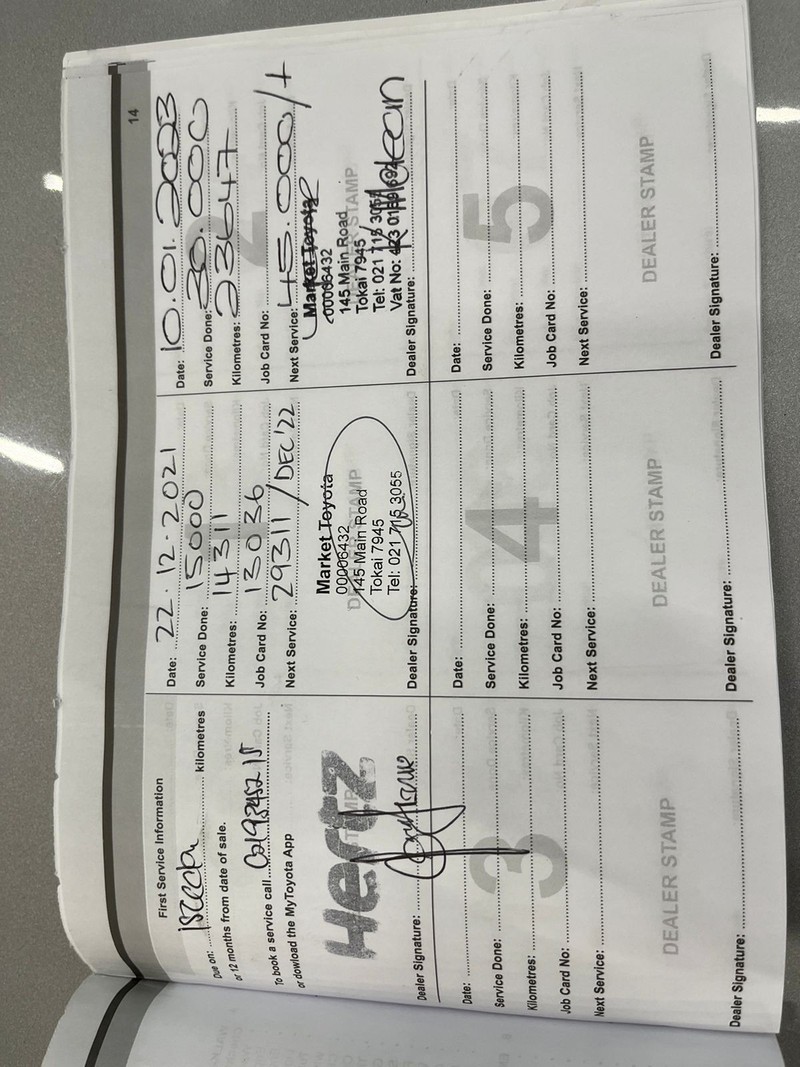 14
First Service Information
Due on: 15000km kilometres
or 12 months from date of sale.
To book a service call
or dowload the MyToyota App
Hertz
Dealer Signature:
Date: 22.12.2021
Service Done: 15000
Kilometres: 14311
Job Card No: 13036
Next Service: 29311 / DEC '22
Market Toyota
00006432
145 Main Road
Tokai 7945
Tel: 021 715 3055
DEALER STAMP
Dealer Signature:
2
Date: 10.01.2023
Service Done: 30.000
Kilometres: 23647
Job Card No:
Next Service: 45.000/
Market Toyota
00006432
145 Main Road
Tokai 7945
Tel: 021 715 3055
Vat No:
STAMP
Dealer Signature:
3
Date:
Service Done:
Kilometres:
Job Card No:
Next Service:
DEALER STAMP
Dealer Signature:
4
Date:
Service Done:
Kilometres:
Job Card No:
Next Service:
DEALER STAMP
Dealer Signature:
5
Date:
Service Done:
Kilometres:
Job Card No:
Next Service:
DEALER STAMP
Dealer Signature: